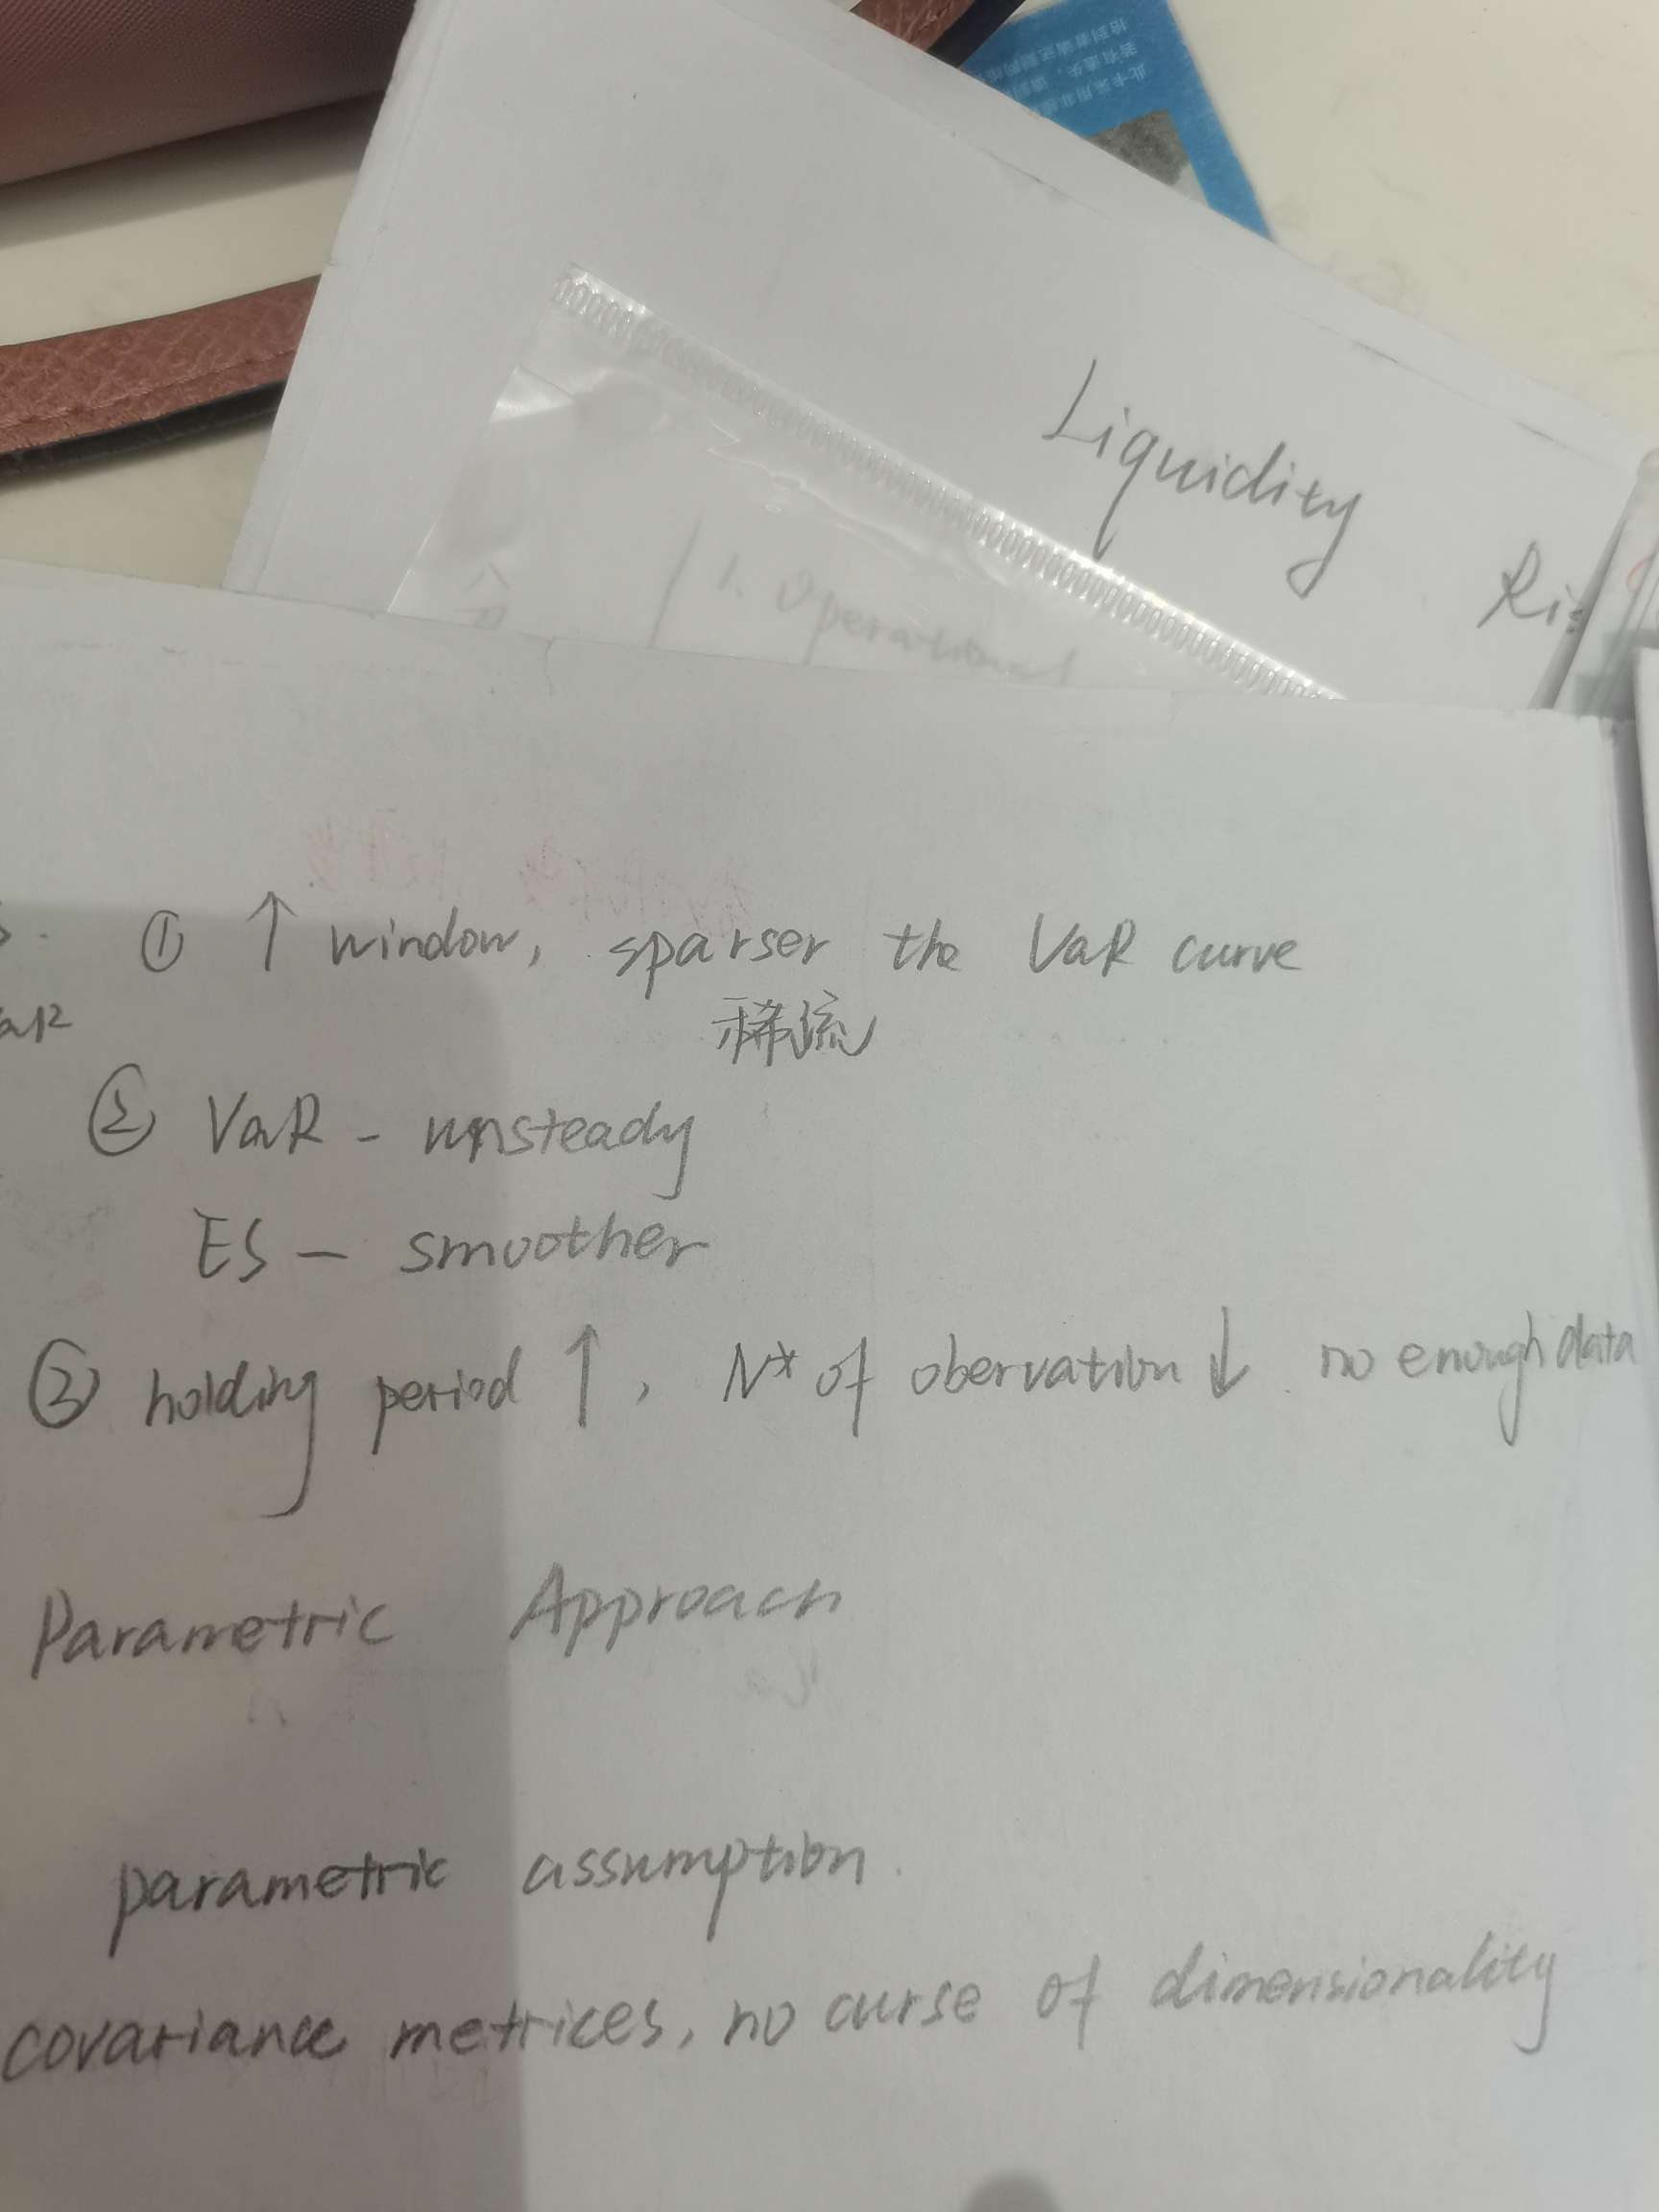 Liquidity
1. Operational
① ↑ window, sparser the VaR curve
稀流
② VaR - unsteady
ES - smoother
③ holding period ↑, N* of obervation ↓ no enough data
Parametric Approach
parametric assumption.
covariance metrices, no curse of dimensionality